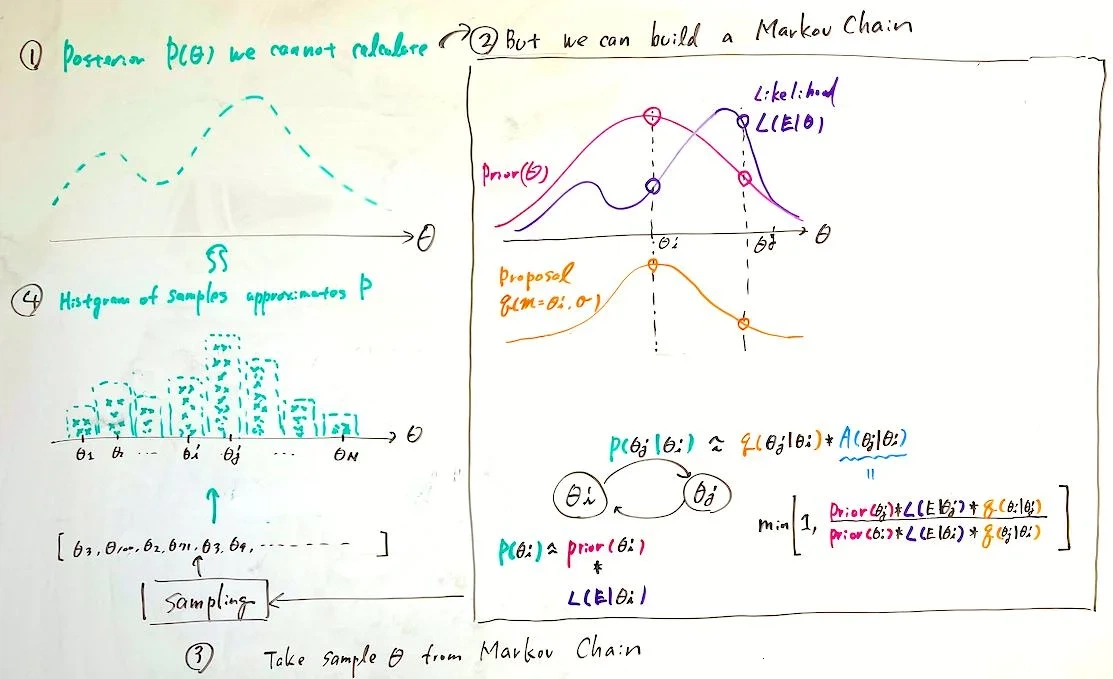 ① Posterior P(θ) we cannot calculate
② But we can build a Markov Chain
Likelihood
L(E|θ)
Prior(θ)
θi
θj
θ
θ
Proposal
q(m=θi,σ)
④ Histgram of samples approximates P
θ
θ1
θi
θj
...
θN
P(θj|θi) ≈ q(θj|θi) * A(θj|θi)
=
θi
θj
min[1, Prior(θj)*L(E|θj)*q(θi|θj)
Prior(θi)*L(E|θi)*q(θj|θi)]
P(θi) ≈ prior(θi)
*
L(E|θi)
sampling
③ Take sample θ from Markov Chain